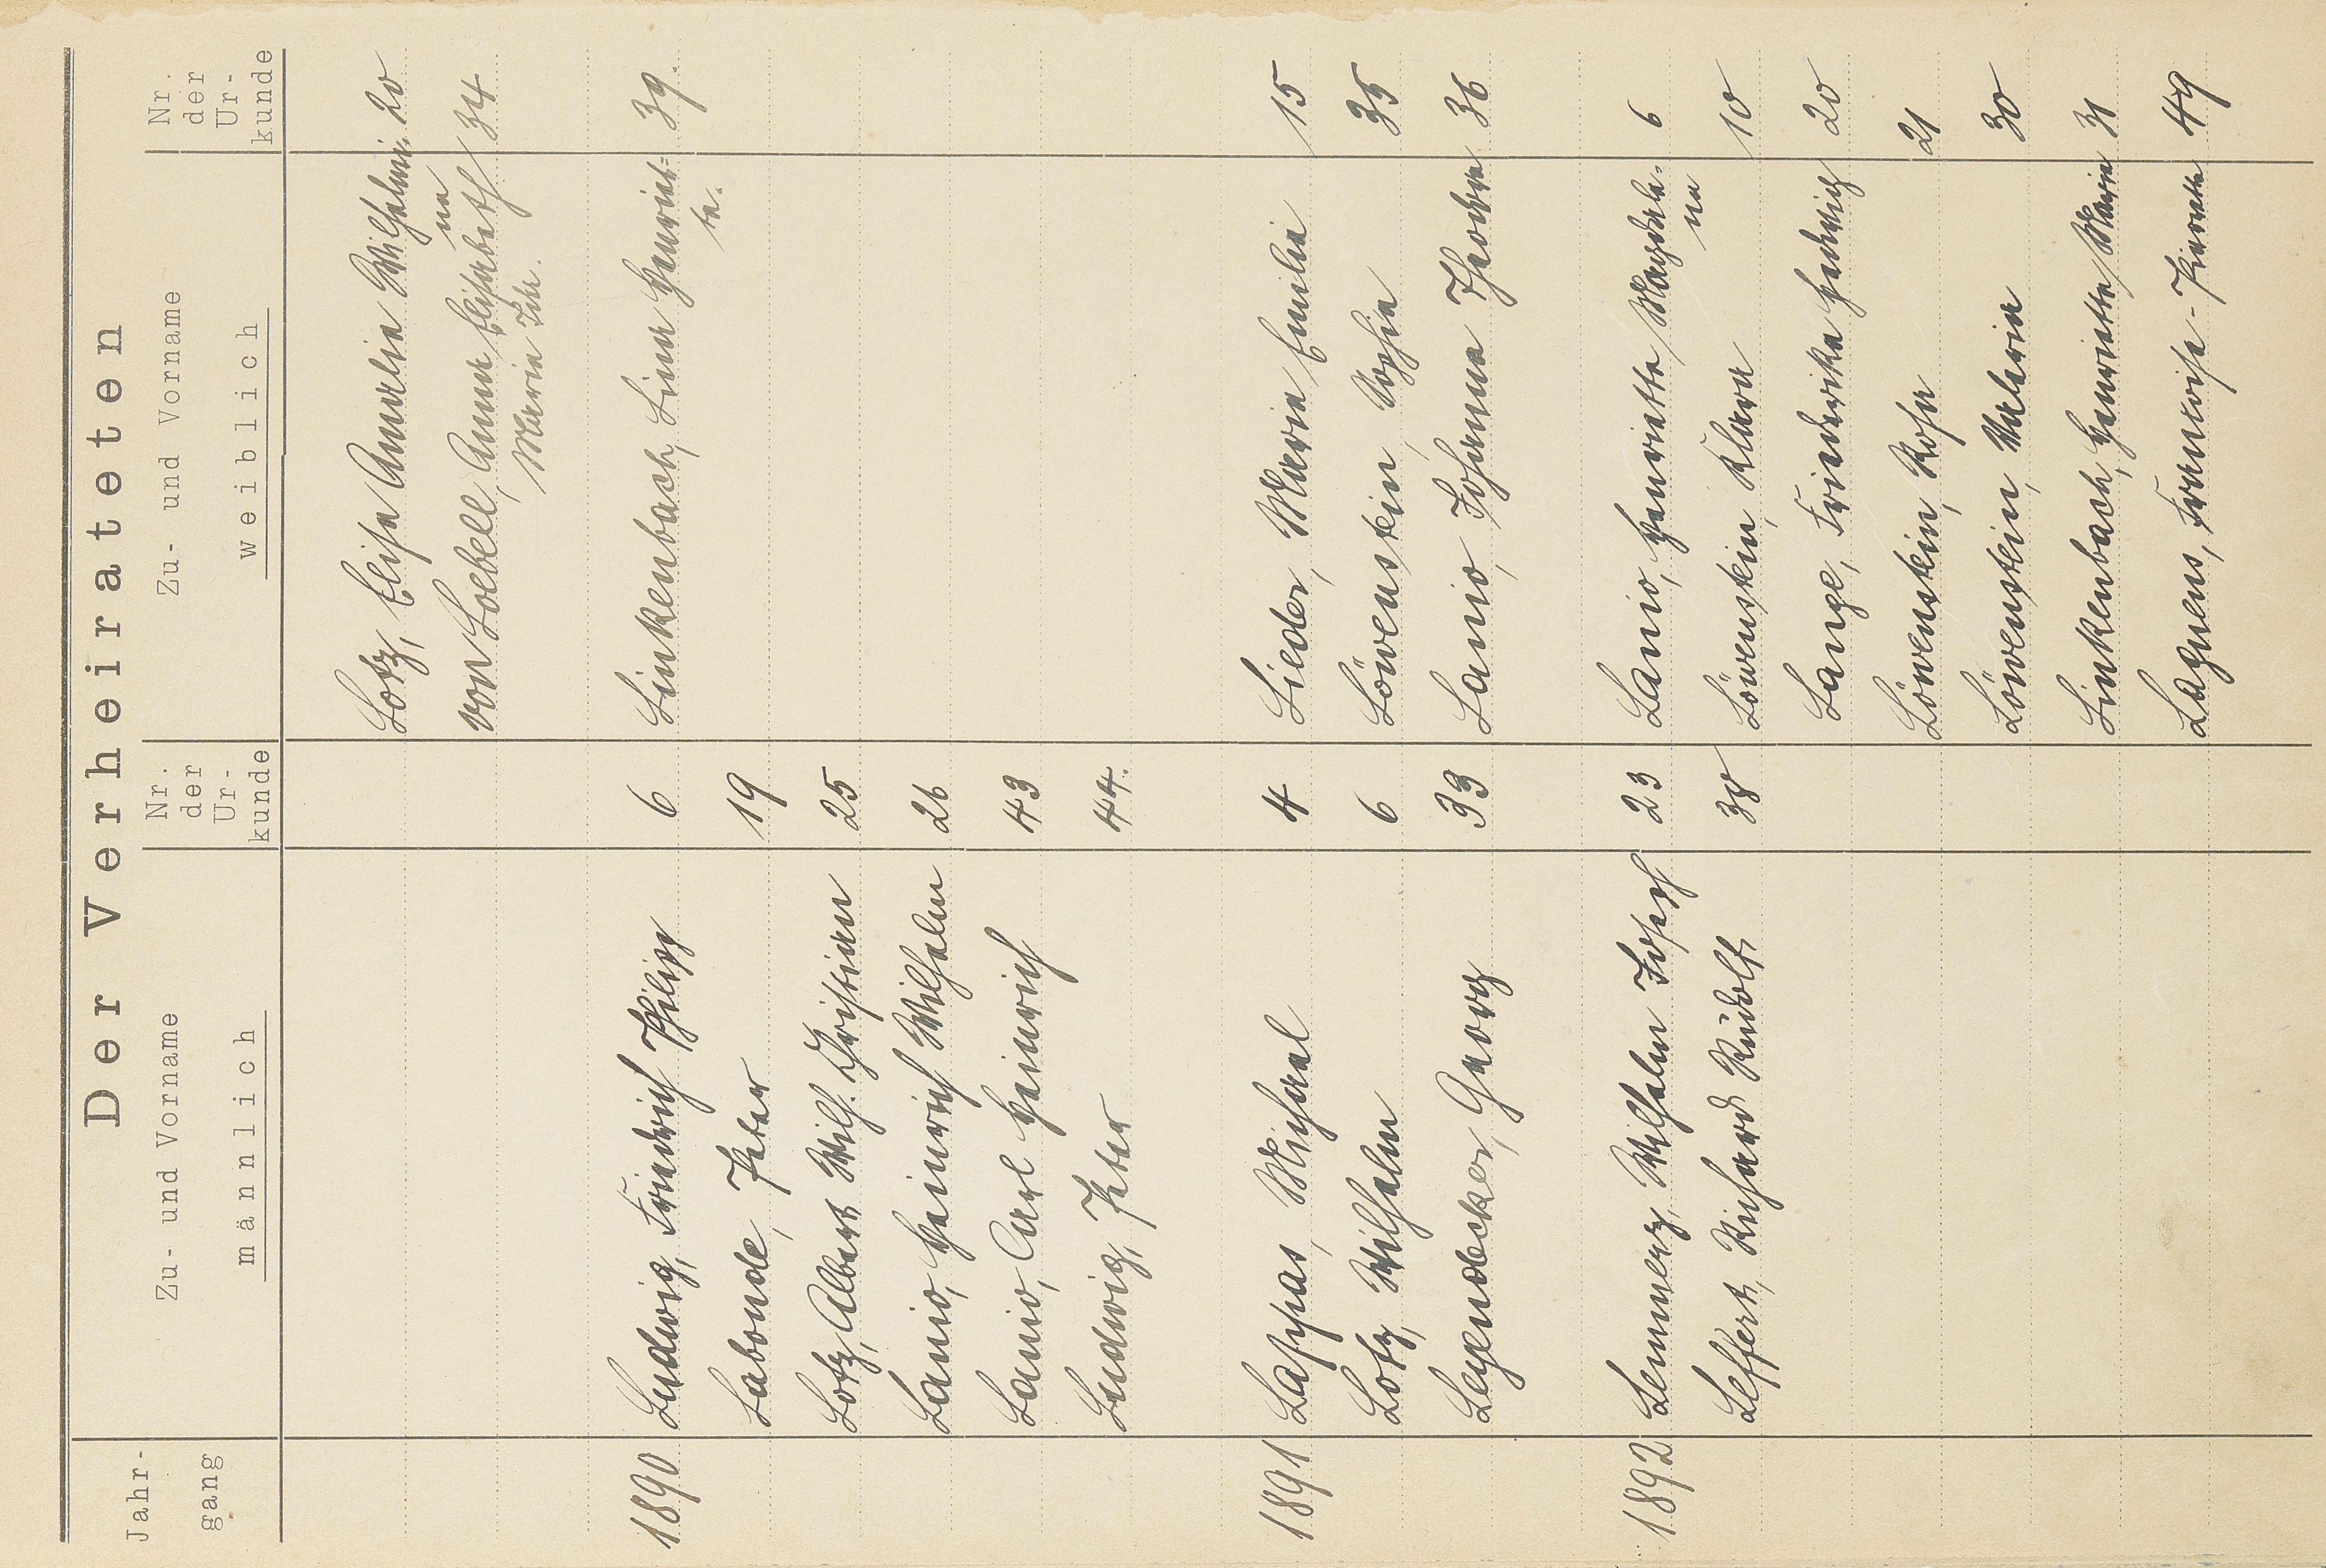 Der Verheirateten
Jahr-
gang
Zu- und Vorname
männlich
Nr.
der
Ur-
kunde
Zu- und Vorname
weiblich
Nr.
der
Ur-
kunde
Lotz, Elise Amalia Wilhelmi 20
na
von Loebell, Anna Elisabeth 34
Maria
1890 Ludwig, Friedrich Philipp 6 Linkenbach, Lina Henriet= 39.
te.
Labonde, Peter 19
Lotz, Albert Wilh. Christian 25
Lanio, Heinrich Wilhelm 26
Lanio, Carl Heinrich 43
Ludwig, Peter 44.
1891 Lappas, Michael 4 Lieder, Maria Emilie 15
Lotz, Wilhelm 6 Löwenstein, Sophie 35
Leyendecker, Georg 33 Lanio, Johanna Theodora 36
1892 Lemmerz, Wilhelm Josef 23 Lanio, Henriette Magdale- 6
na
Leffert, Richard Rudolf 38 Löwenstein, Klara 10
Lange, Friederike Hedwig 20
Löwenstein, Rosa 21
Löwenstein, Valeria 30
Linkenbach, Henriette Maria 31
Lagneus, Franzoise-Pierrette 49